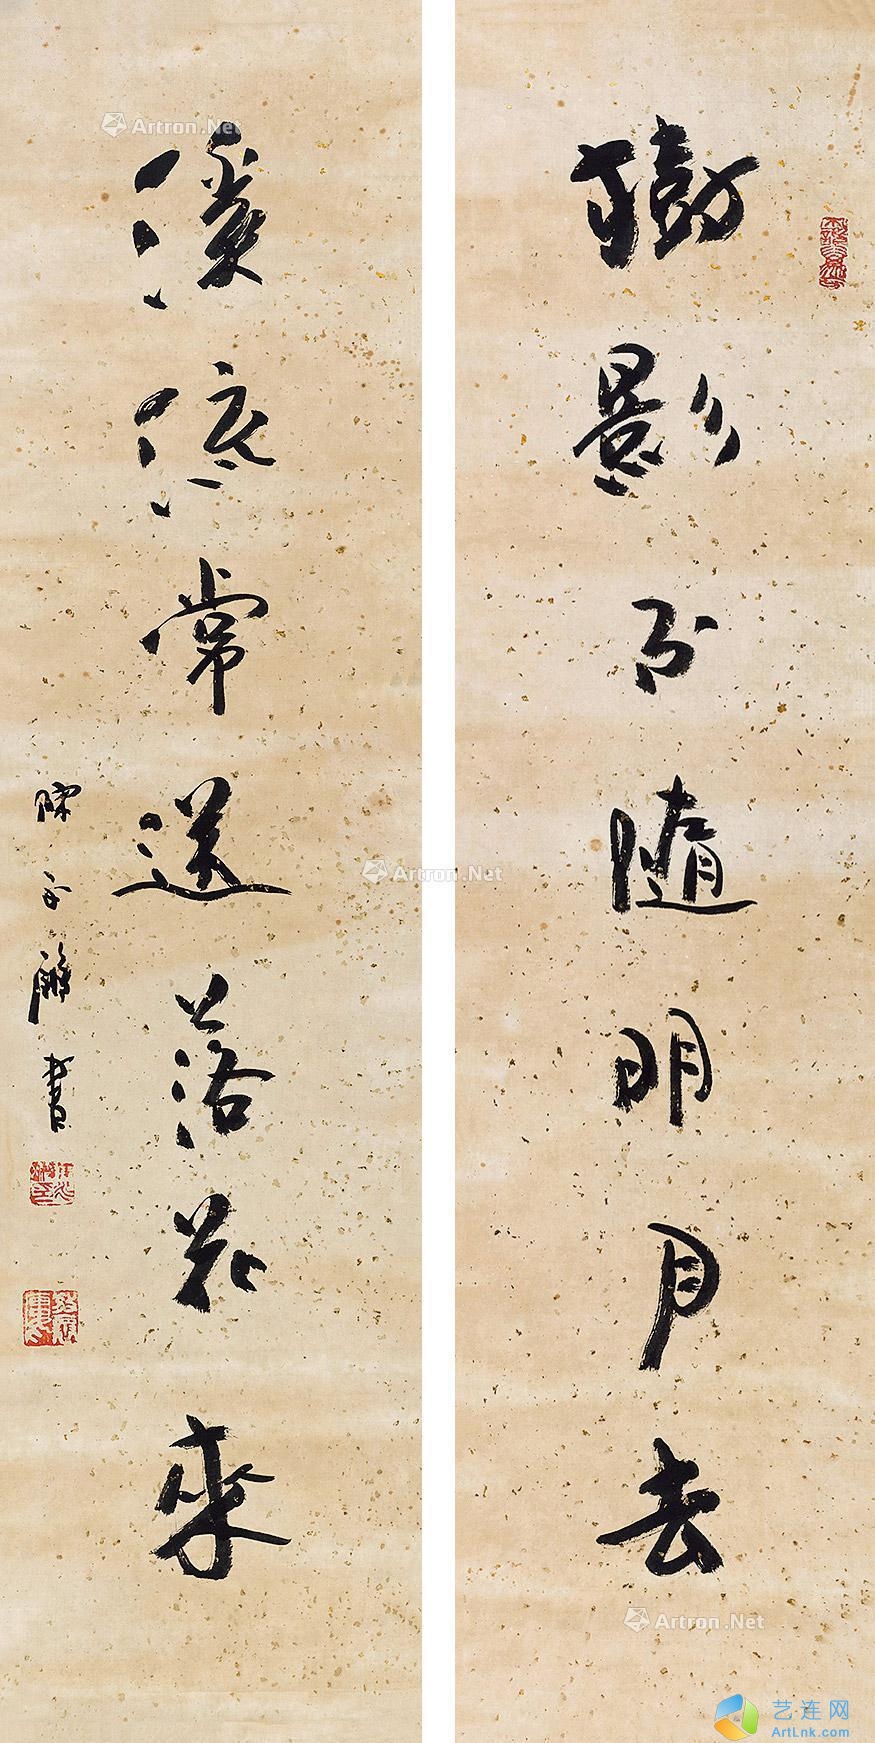 樹影不隨明月去
溪流常送落花來
陳子蘭書
Artron.Net
Artron.Net
Artron.Net
艺连网
ArtLnk.com